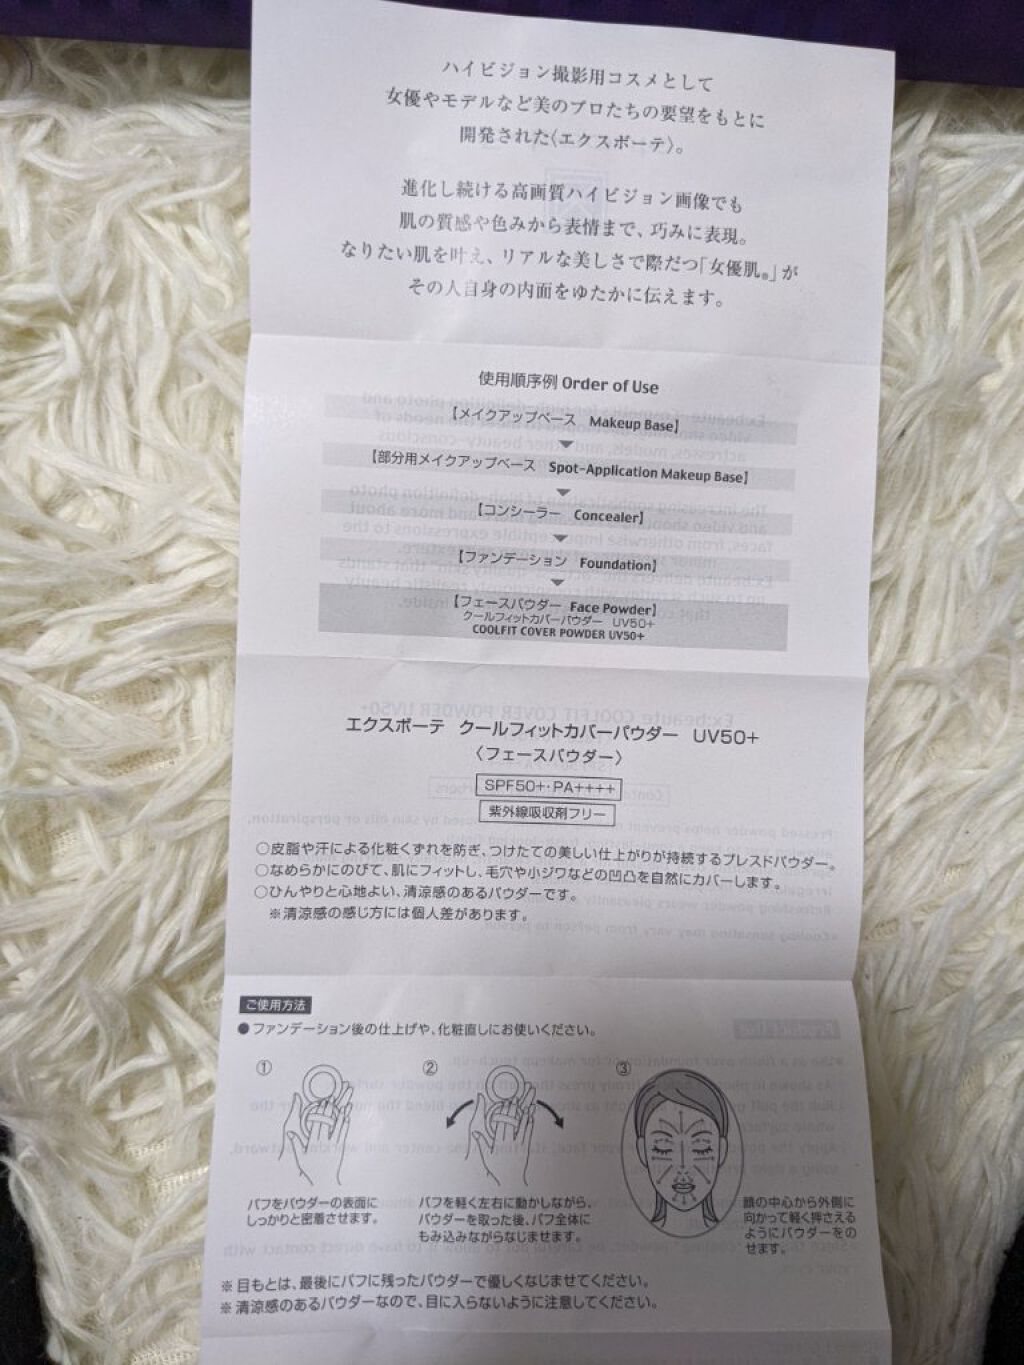 ハイビジョン撮影用コスメとして
女優やモデルなど美のプロたちの要望をもとに
開発された〈エクスボーテ〉。
進化し続ける高画質ハイビジョン画像でも
肌の質感や色みから表情まで、巧みに表現。
なりたい肌を叶え、リアルな美しさで際だつ「女優肌®」が
その人自身の内面をゆたかに伝えます。
使用順序例 Order of Use
【メイクアップベース Makeup Base】
【部分用メイクアップベース Spot-Application Makeup Base】
【コンシーラー Concealer】
【ファンデーション Foundation】
【フェースパウダー Face Powder】
クールフィットカバーパウダー UV50+
COOLFIT COVER POWDER UV50+
エクスボーテ クールフィットカバーパウダー UV50+
〈フェースパウダー〉
SPF50+・PA++++
紫外線吸収剤フリー
○皮脂や汗による化粧くずれを防ぎ、つけたての美しい仕上がりが持続するプレスドパウダー。
○なめらかにのびて、肌にフィットし、毛穴や小ジワなどの凹凸を自然にカバーします。
○ひんやりと心地よい、清涼感のあるパウダーです。
※清涼感の感じ方には個人差があります。
ご使用方法
●ファンデーション後の仕上げや、化粧直しにお使いください。
① ② ③
パフをパウダーの表面に
しっかりと密着させます。
パフを軽く左右に動かしながら、
パウダーを取った後、パフ全体に
もみ込みながらなじませます。
顔の中心から外側に
向かって軽く押さえる
ようにパウダーをの
せます。
※目もとは、最後にパフに残ったパウダーで優しくなじませてください。
※清涼感のあるパウダーなので、目に入らないように注意してください。